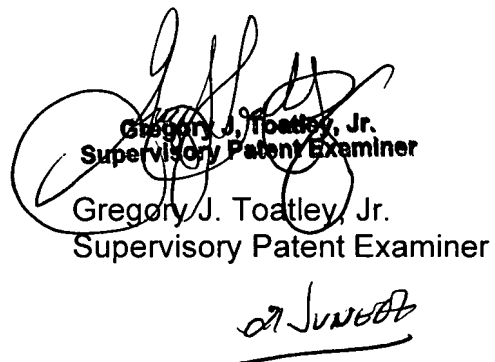 Gregory J. Toatley, Jr.
Supervisory Patent Examiner
Gregory J. Toatley, Jr.
Supervisory Patent Examiner